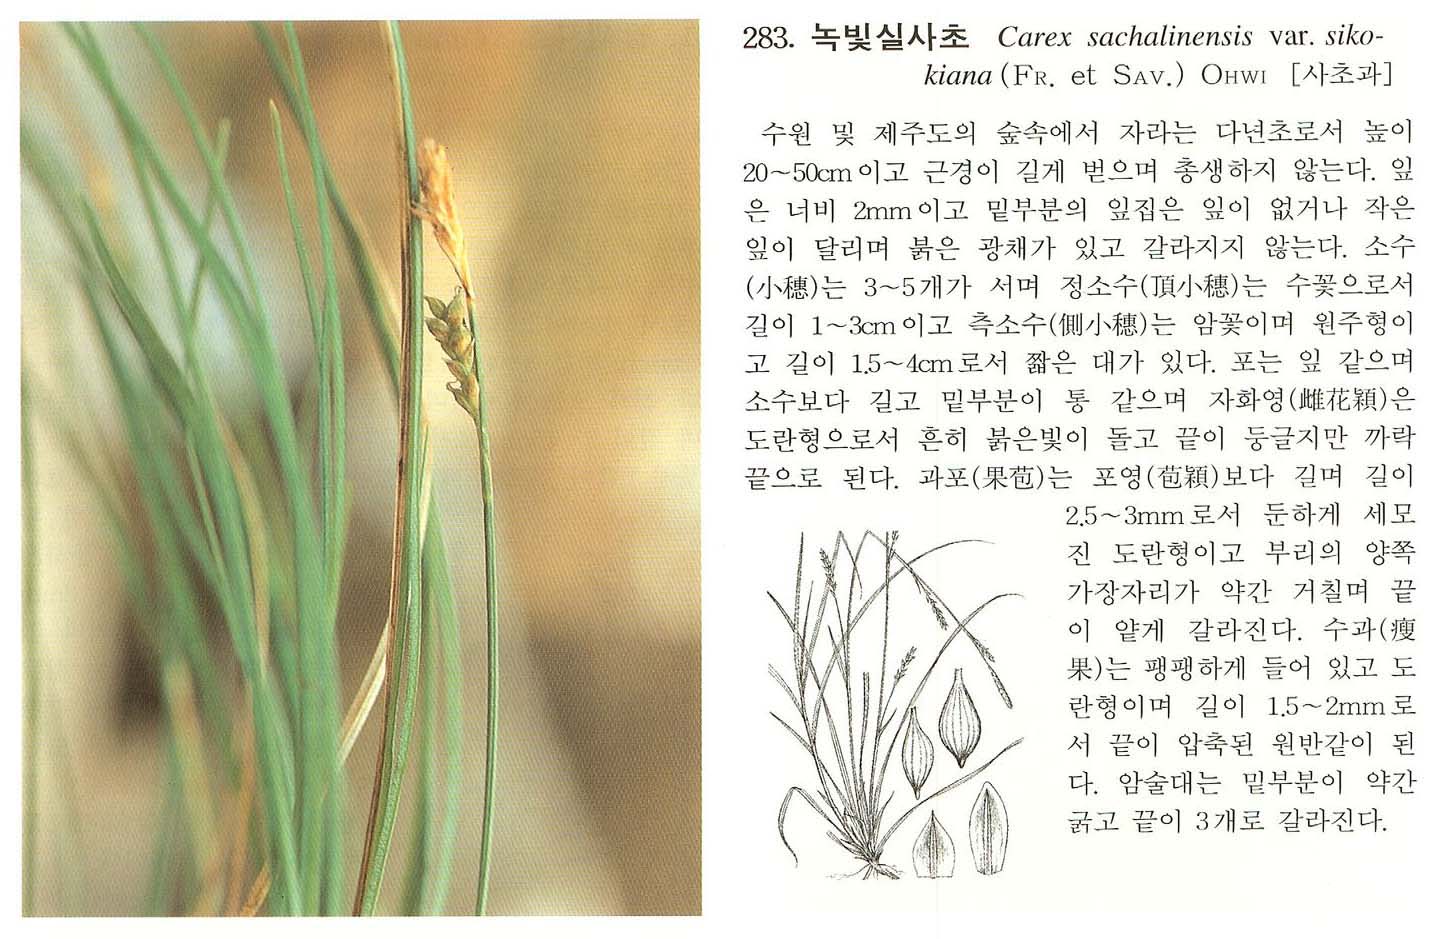 283. 녹빛실사초 Carex sachalinensis var. siko-
kiana (FR. et SAV.) OHWI [사초과]
수원 및 제주도의 숲속에서 자라는 다년초로서 높이
20~50cm이고 근경이 길게 벋으며 총생하지 않는다. 잎
은 너비 2mm이고 밑부분의 잎집은 잎이 없거나 작은
잎이 달리며 붉은 광채가 있고 갈라지지 않는다. 소수
(小穗)는 3~5개가 서며 정소수(頂小穗)는 수꽃으로서
길이 1~3cm이고 측소수(側小穗)는 암꽃이며 원주형이
고 길이 1.5~4cm로서 짧은 대가 있다. 포는 잎 같으며
소수보다 길고 밑부분이 통 같으며 자화영(雌花穎)은
도란형으로서 흔히 붉은빛이 돌고 끝이 둥글지만 까락
끝으로 된다. 과포(果苞)는 포영(苞穎)보다 길며 길이
2.5~3mm로서 둔하게 세모
진 도란형이고 부리의 양쪽
가장자리가 약간 거칠며 끝
이 얕게 갈라진다. 수과(瘦
果)는 팽팽하게 들어 있고 도
란형이며 길이 1.5~2mm로
서 끝이 압축된 원반같이 된
다. 암술대는 밑부분이 약간
굵고 끝이 3개로 갈라진다.